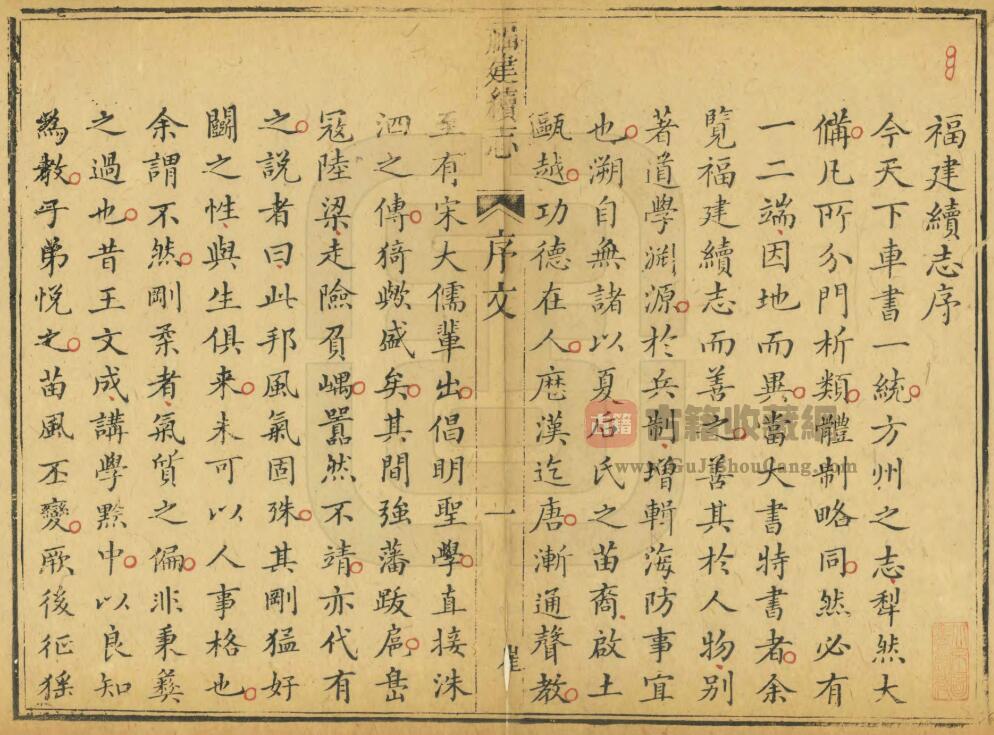 福建續志序
今天下車書一統方州之志犁然大
備凡所分門析類體制略同然必有
一二端因地而異當大書特書者余
覽福建續志而善之善其於人物別
著道學淵源於兵制增輯海防事宜
也溯自無諸以夏后氏之苗裔啟土
甌越功德在人歷漢迄唐漸通聲教
福建續志
序文
一
崔
至有宋大儒輩出倡明聖學直接洙
泗之傳猗歟盛矣其間強藩跋扈島
寇陸梁走險負嵎囂然不靖亦代有
之說者曰此邦風氣固殊其剛猛好
鬬之性與生俱來未可以人事格也
余謂不然剛柔者氣質之偏非秉彝
之過也昔王文成講學黔中以良知
為教子弟悅之苗風丕變厥後征猺
古籍收藏網
www.GuJiShouCang.com